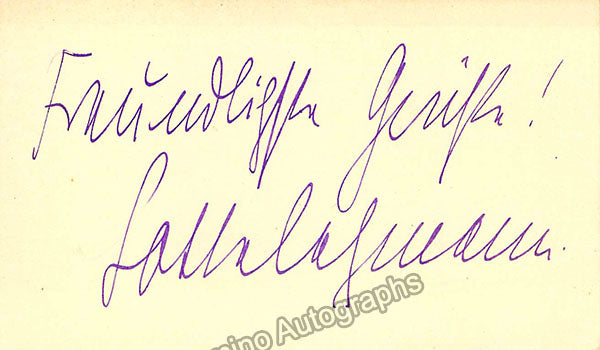 Freundlichste Grüße!
Lotte Lehmann.
mino Autographs